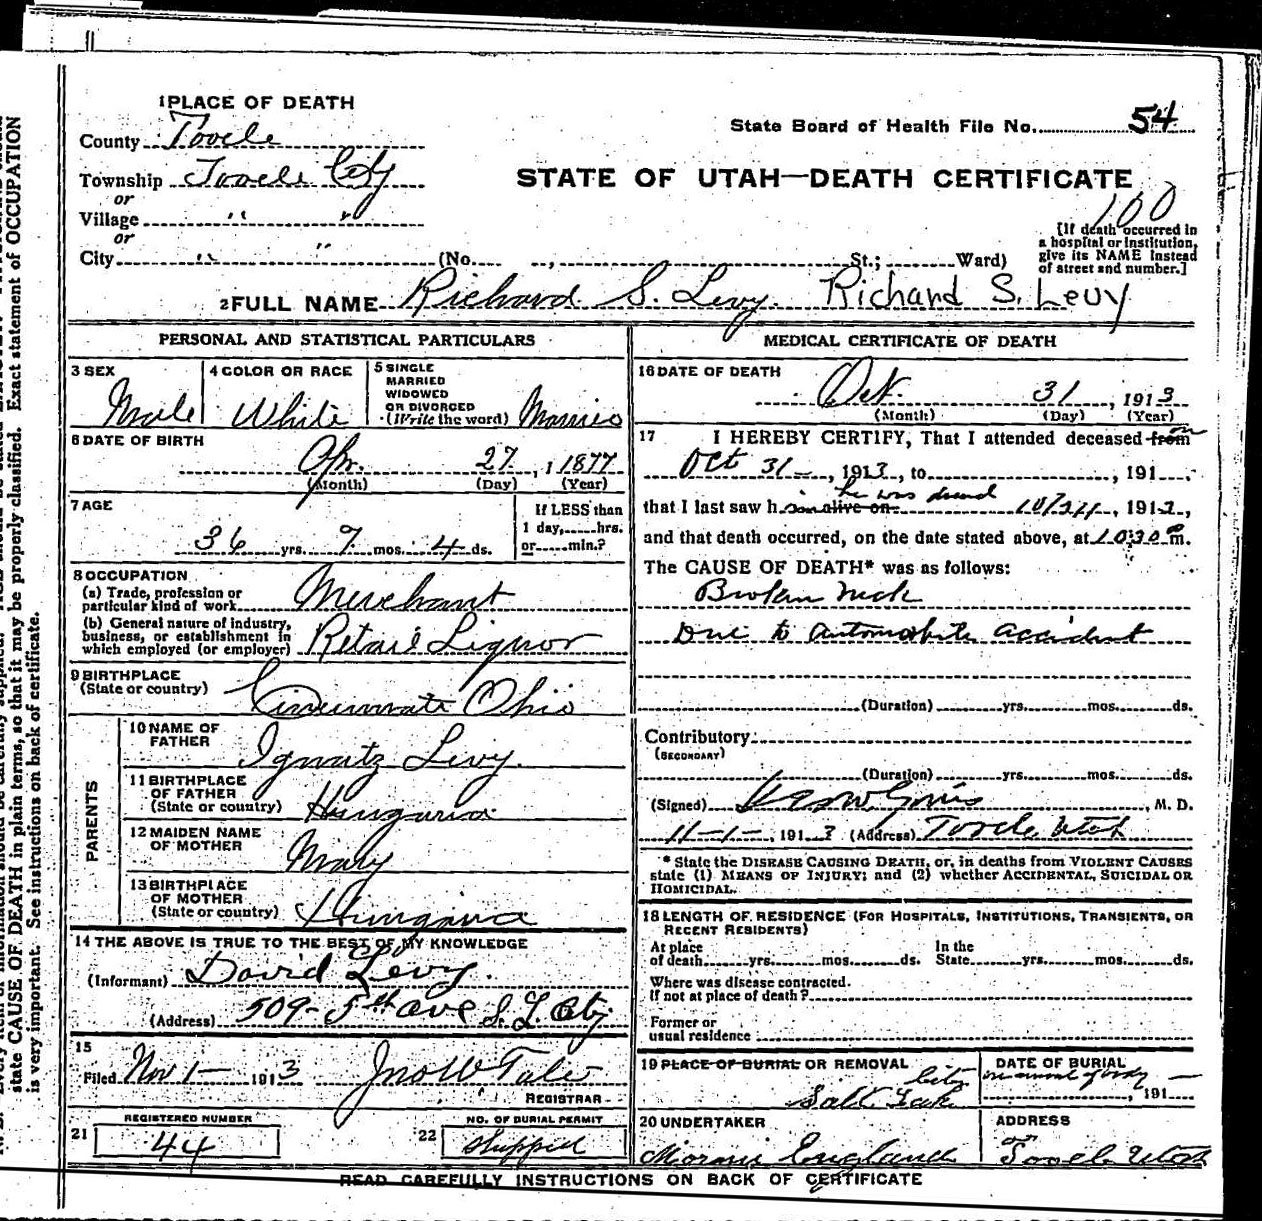 1 PLACE OF DEATH
County Tooele
State Board of Health File No. 54
Township Tooele City
STATE OF UTAH—DEATH CERTIFICATE
or
Village " "
100
or
City " " (No. , St.; Ward)
[If death occurred in
a hospital or institution,
give its NAME instead
of street and number.]
2 FULL NAME Richard S. Levy. Richard S. Levy
PERSONAL AND STATISTICAL PARTICULARS
3 SEX
Male
4 COLOR OR RACE
White
5 SINGLE
MARRIED
WIDOWED
OR DIVORCED
(Write the word) Married
6 DATE OF BIRTH
Apr. 27, 1877
(Month) (Day) (Year)
7 AGE
36 yrs. 7 mos. 4 ds.
If LESS than
1 day, hrs.
or min.?
8 OCCUPATION
(a) Trade, profession or
particular kind of work Merchant
(b) General nature of industry,
business, or establishment in
which employed (or employer) Retail Liquor
9 BIRTHPLACE
(State or country) Cincinnati Ohio
PARENTS
10 NAME OF
FATHER Ignatz Levy.
11 BIRTHPLACE
OF FATHER
(State or country) Hungaria
12 MAIDEN NAME
OF MOTHER Mary
13 BIRTHPLACE
OF MOTHER
(State or country) Hungaria
14 THE ABOVE IS TRUE TO THE BEST OF MY KNOWLEDGE
(Informant) David Levy.
(Address) 509- 5th ave S. L. City
15
Filed Nov 1 - 1913 Jno W Tate
REGISTRAR
REGISTERED NUMBER
21 44
NO. OF BURIAL PERMIT
22 Shipped
MEDICAL CERTIFICATE OF DEATH
16 DATE OF DEATH
Oct. 31, 1913
(Month) (Day) (Year)
17 I HEREBY CERTIFY, That I attended deceased from on
Oct 31 -, 1913, to , 191
he was dead
that I last saw h im alive on , 191 ,
and that death occurred, on the date stated above, at 1030 m.
The CAUSE OF DEATH* was as follows:
Broken neck
Due to automobile accident
(Duration) yrs. mos. ds.
Contributory
(SECONDARY)
(Duration) yrs. mos. ds.
(Signed) , M. D.
11-1-, 1913 (Address) Tooele Utah
* State the DISEASE CAUSING DEATH, or, in deaths from VIOLENT CAUSES
state (1) MEANS OF INJURY; and (2) whether ACCIDENTAL, SUICIDAL OR
HOMICIDAL.
18 LENGTH OF RESIDENCE (FOR HOSPITALS, INSTITUTIONS, TRANSIENTS, OR
RECENT RESIDENTS)
At place
of death yrs. mos. ds.
In the
State yrs. mos. ds.
Where was disease contracted.
If not at place of death?
Former or
usual residence
19 PLACE OF BURIAL OR REMOVAL
Salt Lake City
DATE OF BURIAL
, 191
20 UNDERTAKER
England
ADDRESS
Tooele Utah
READ CAREFULLY INSTRUCTIONS ON BACK OF CERTIFICATE
state CAUSE OF DEATH in plain terms, so that it may be properly classified. Exact statement of OCCUPATION
is very important. See instructions on back of certificate.